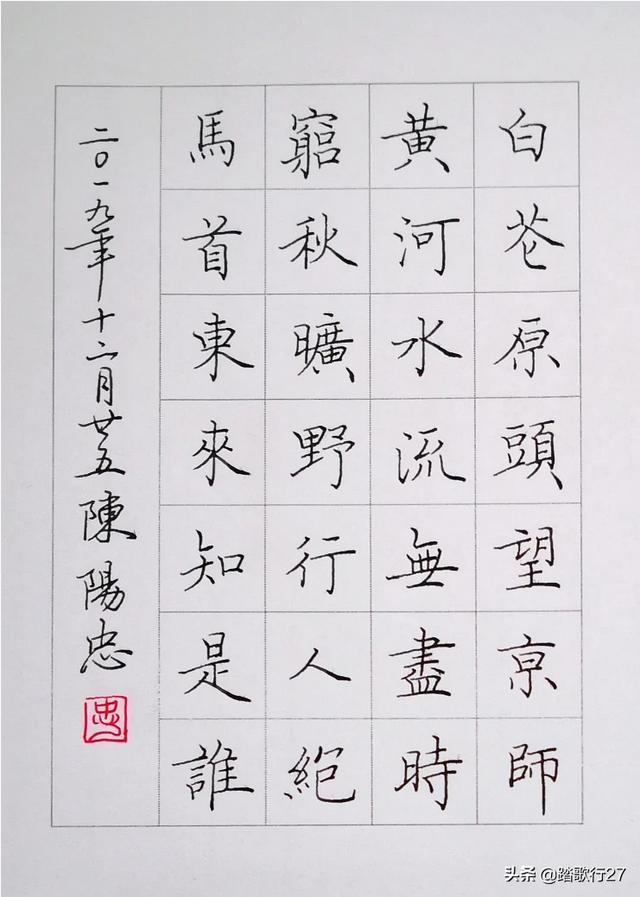 白花原頭望京師
黃河水流無盡時
窮秋曠野行人絕
馬首東來知是誰
二〇一九年十二月廿五陳陽忠
忠
头条 @踏歌行27